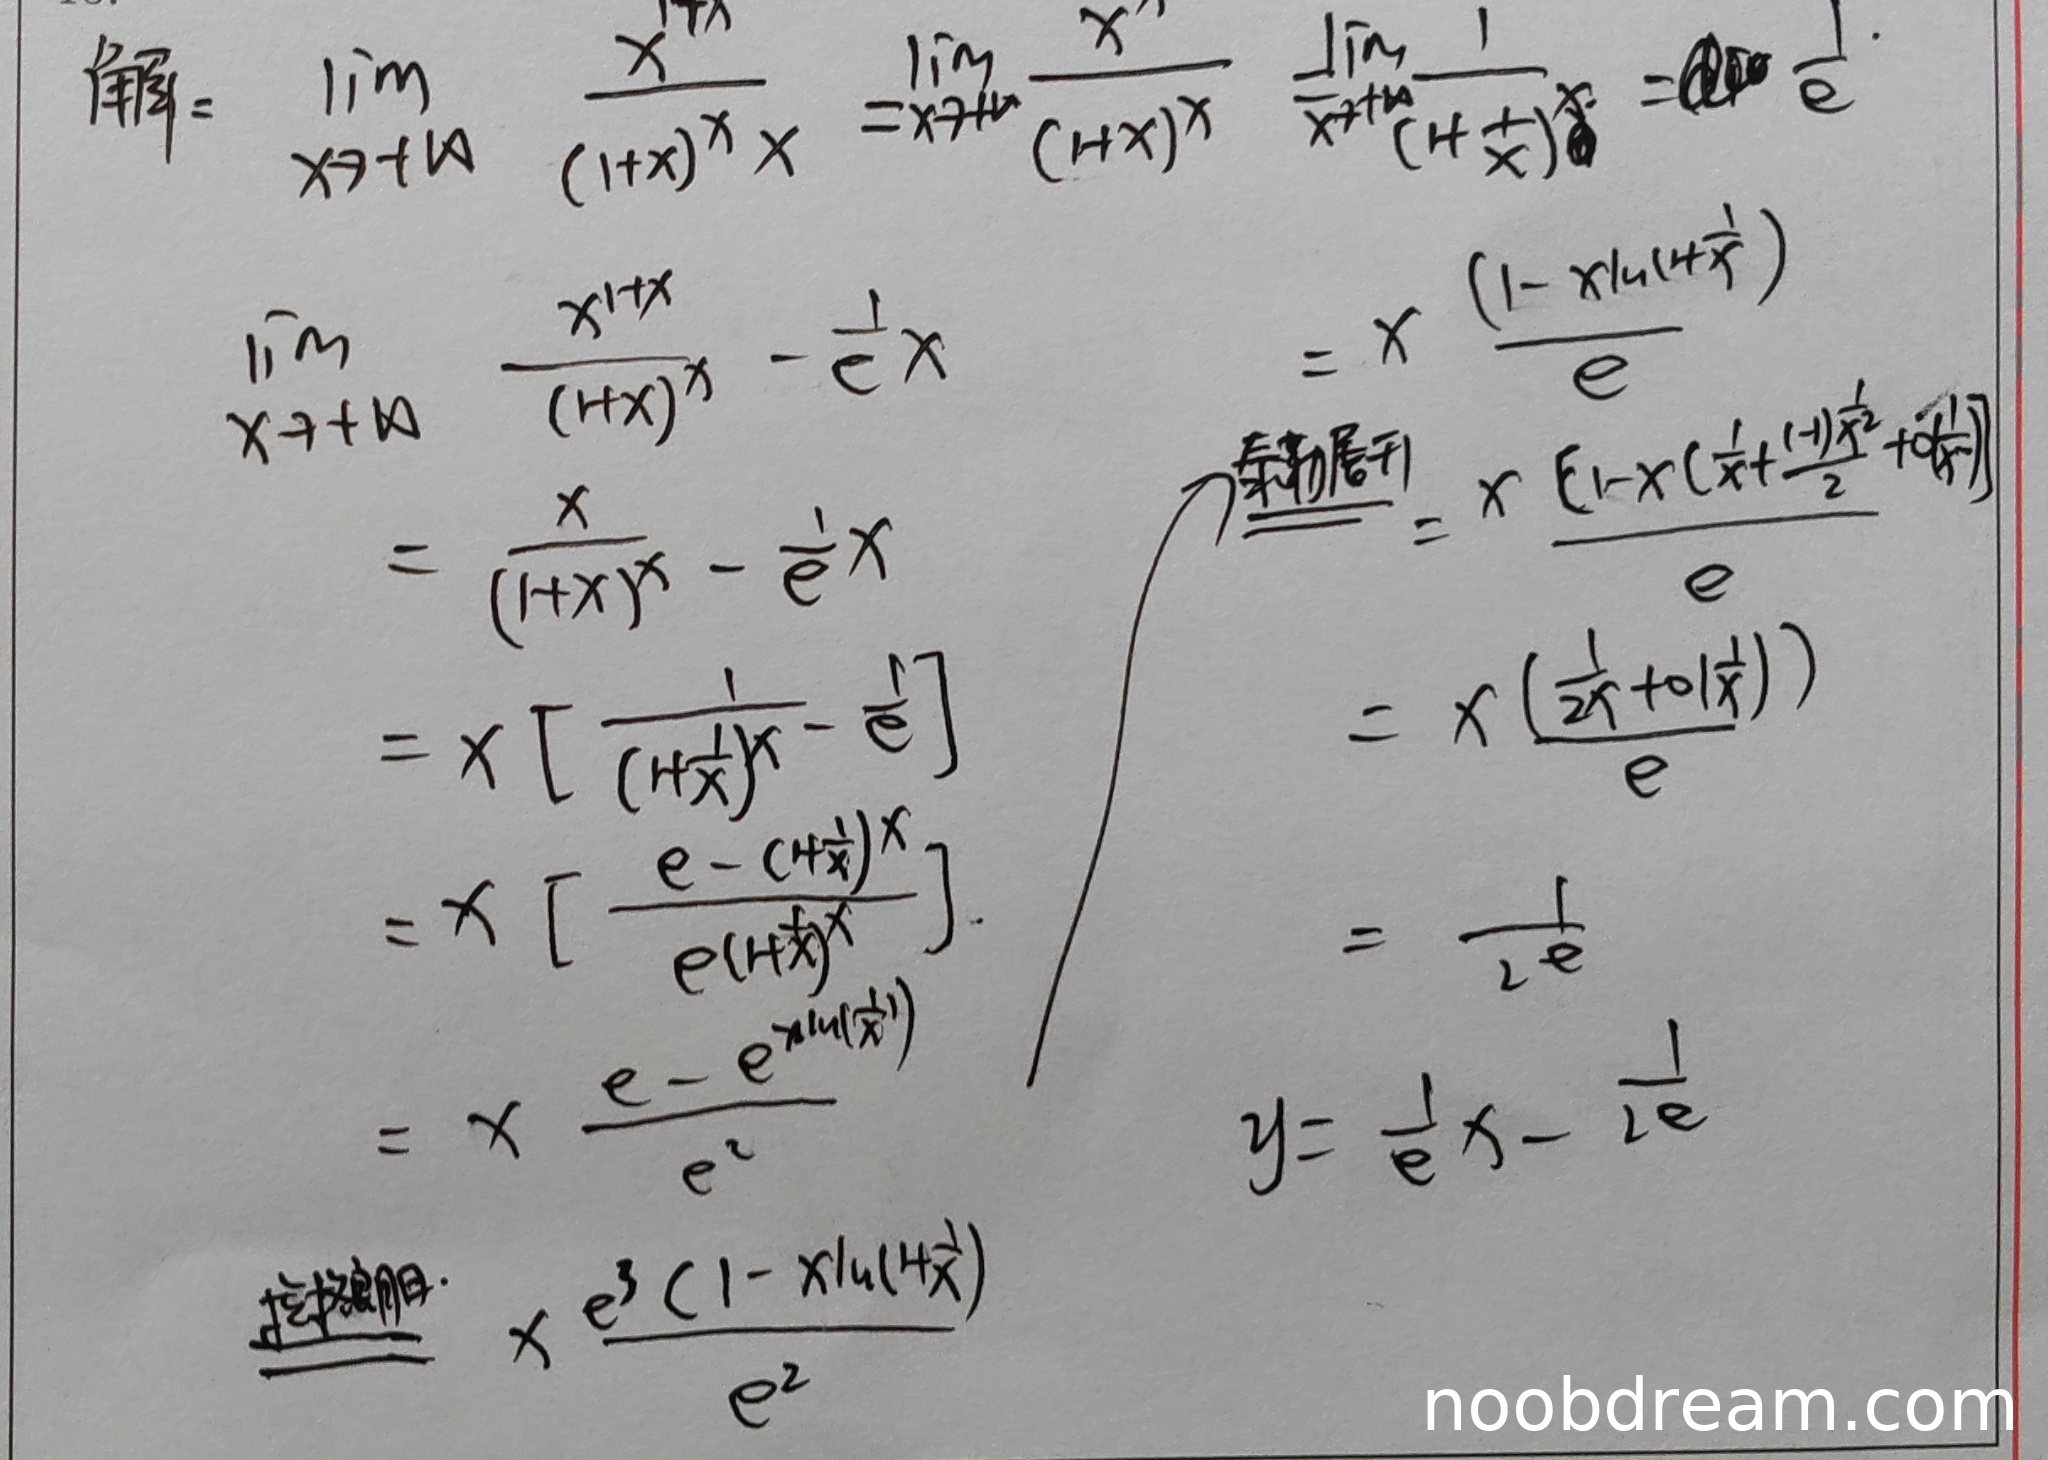 解: lim x→+∞ x^(1+x) / ((1+x)^x x) = lim x→+∞ x^x / (1+x)^x = lim x→+∞ 1 / (1+1/x)^x = 1/e.
lim x→+∞ x^(1+x) / (1+x)^x - 1/e x
= x / (1+x)^x - 1/e x
= x [ 1 / (1+1/x)^x - 1/e ]
= x [ (e - (1+1/x)^x) / (e(1+1/x)^x) ].
= x (e - e^(xln(1/x+1))) / e^2
x e^ξ (1 - xln(1+1/x)) / e^2
= x (1 - xln(1+1/x)) / e
泰勒展开 = x [1-x(1/x + (-1)1/x^2 / 2 + o(1/x^2))] / e
= x (1/2x + o(1/x)) / e
= 1 / 2e
y = 1/e x - 1/2e
noobdream.com